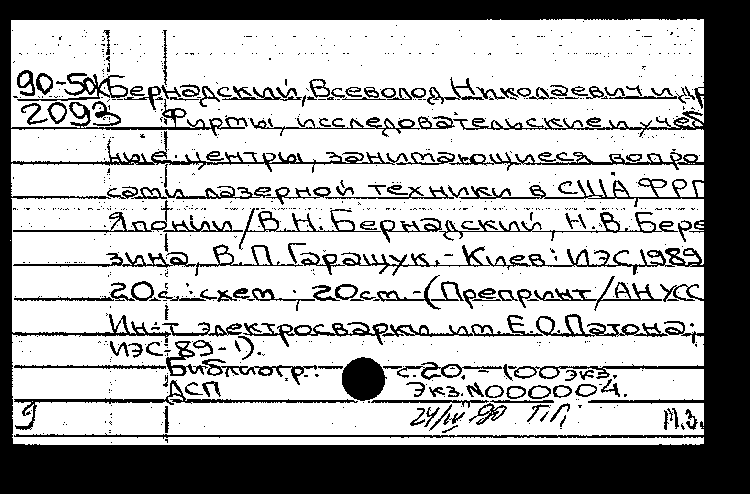 90-50к Бернадский, Всеволод Николаевич и др
2093 Фирмы, исследовательские и учеб
ные центры, занимающиеся вопро
сами лазерной техники в США, ФРГ
Японии / В.Н. Бернадский, Н.В. Бере
зина, В.П. Гаращук. - Киев: ИЭС, 1989
20 с.: схем ; 20 см. - (Препринт / АН УСС
Ин-т электросварки им. Е.О. Патона;
ИЭС-89-1).
Библиогр.: с. 20. - 100 экз.
ДСП Экз. N 000004.
9 М.З.